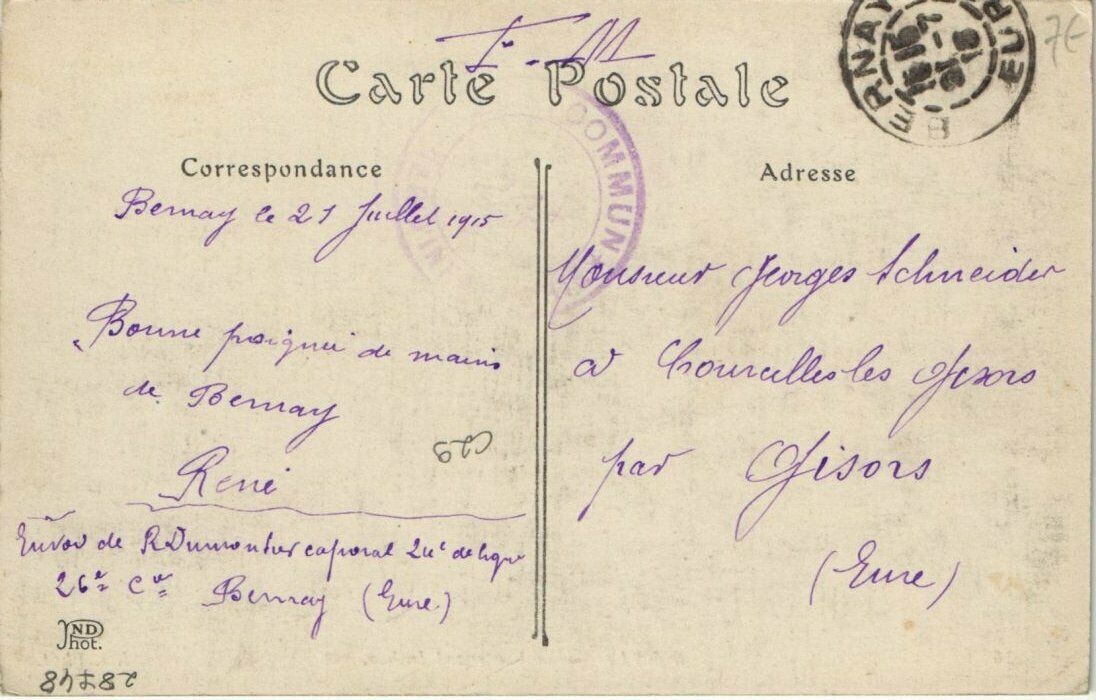 F. M.
Carte Postale
BERNAY EURE
7€
COMMUN
Correspondance
Adresse
Bernay le 21 Juillet 1915
Bonne poignée de mains
de Bernay
René
Envoi de R Dumontier caporal 24e de ligne
26e Cie Bernay (Eure)
Monsieur Georges Schneider
à Courcelles les Gisors
par Gisors
(Eure)
ND Phot.